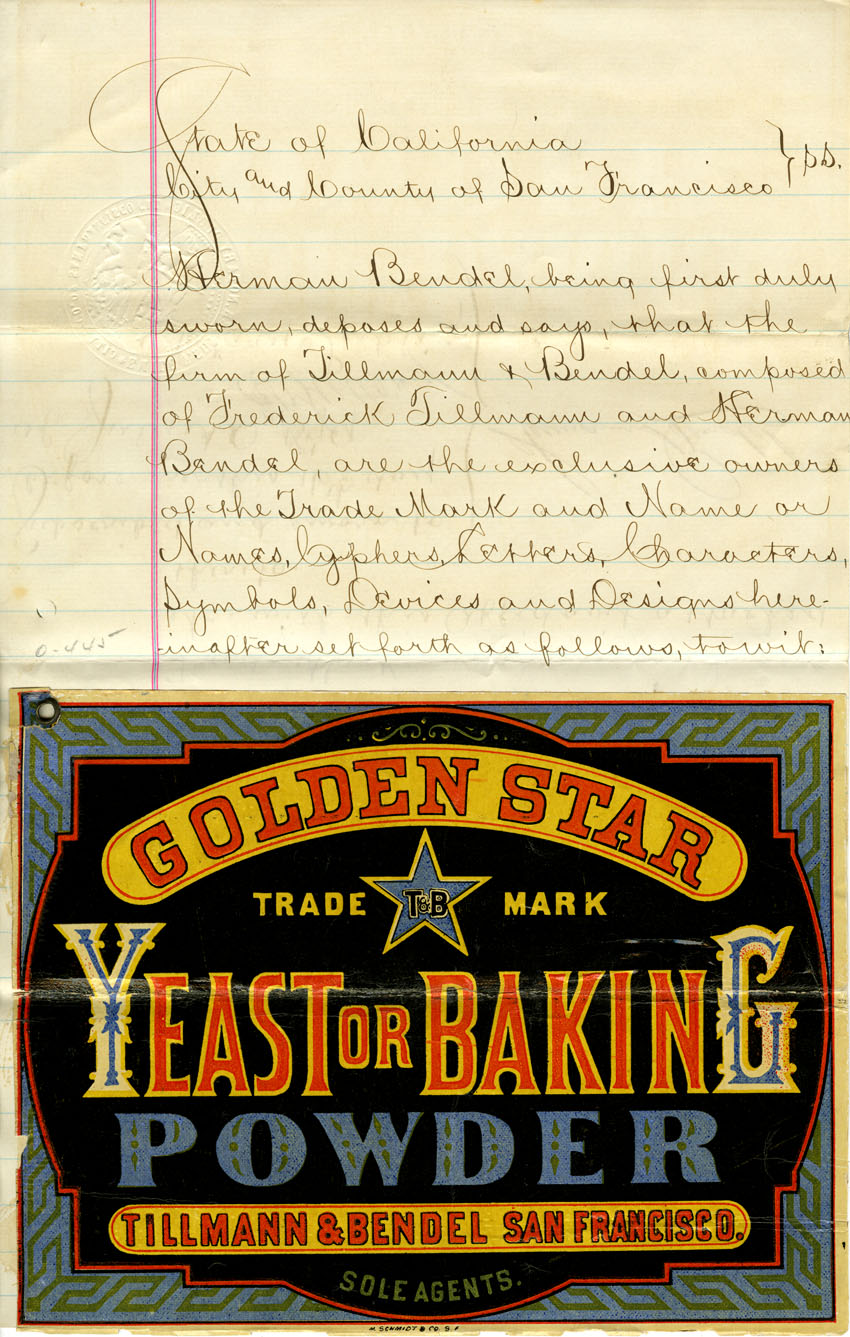 State of California
City and County of San Francisco } ss.
Herman Bendel, being first duly
sworn, deposes and says, that the
firm of Tillmann & Bendel, composed
of Frederick Tillmann and Herman
Bendel, are the exclusive owners
of the Trade Mark and Name or
Names, Cyphers, Letters, Characters,
Symbols, Devices and Designs here-
inafter set forth as follows, to wit:
0-445
GOLDEN STAR
TRADE T&B MARK
YEAST OR BAKING
POWDER
TILLMANN & BENDEL SAN FRANCISCO.
SOLE AGENTS.
M. SCHMIDT & CO. S. F